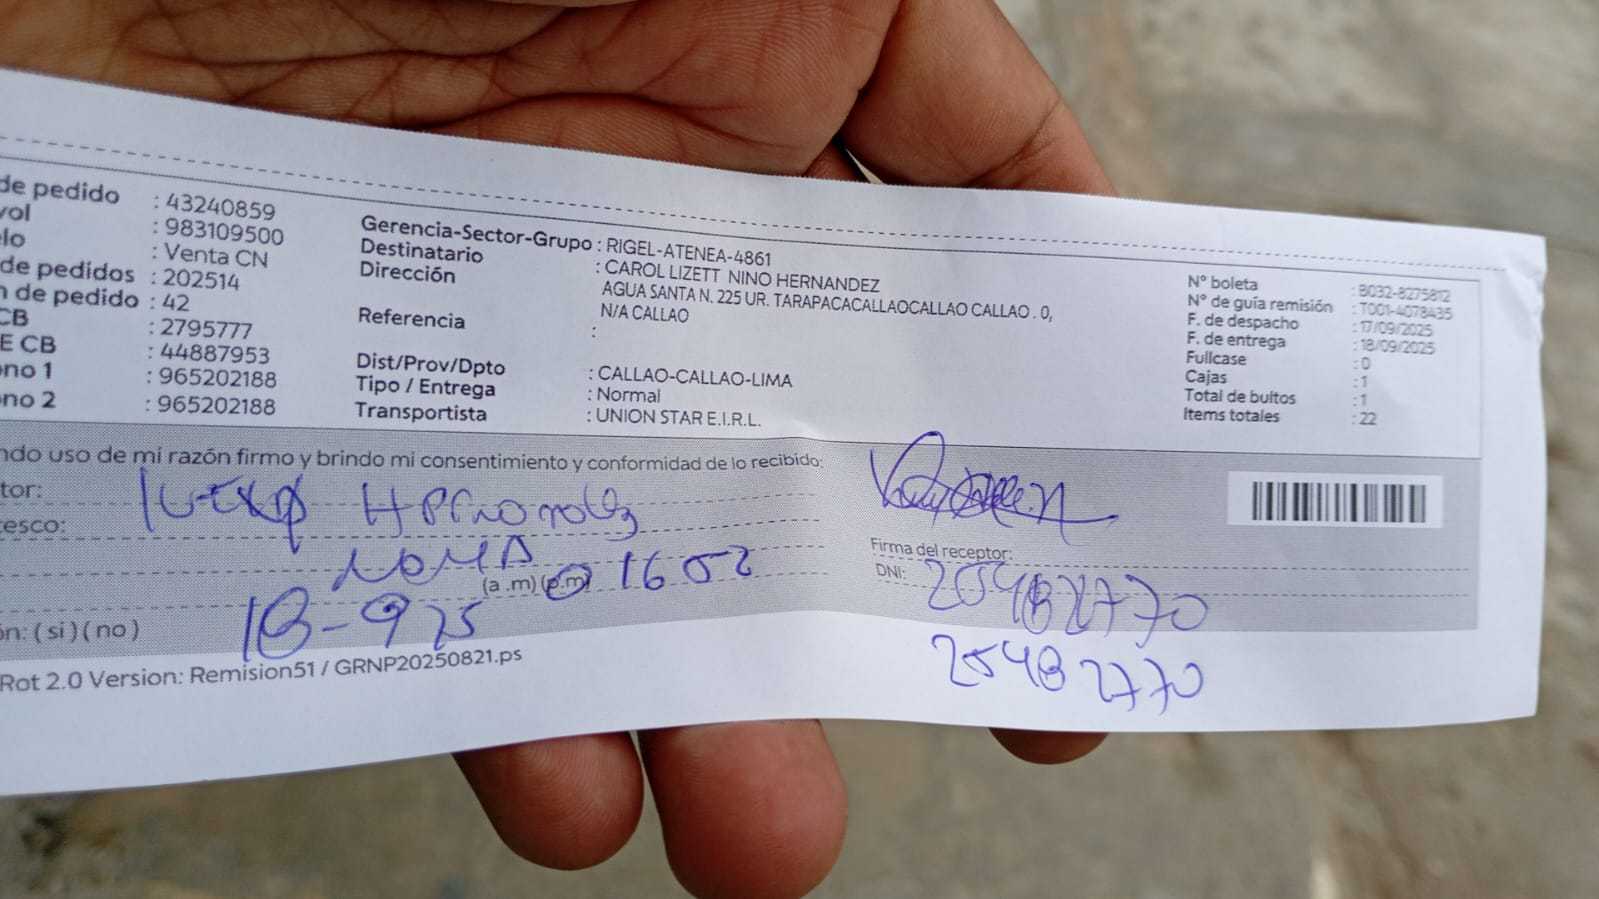 de pedido : 43240859
vol : 983109500
elo : Venta CN
de pedidos : 202514
n de pedido : 42
CB : 2795777
E CB : 44887953
ono 1 : 965202188
ono 2 : 965202188
Gerencia-Sector-Grupo : RIGEL-ATENEA-4861
Destinatario : CAROL LIZETT NINO HERNANDEZ
Dirección AGUA SANTA N. 225 UR. TARAPACACALLAOCALLAO CALLAO . 0,
N/A CALLAO
Referencia :
Dist/Prov/Dpto : CALLAO-CALLAO-LIMA
Tipo / Entrega : Normal
Transportista : UNION STAR E.I.R.L.
N° boleta : B032-8275812
N° de guía remisión : T001-4078435
F. de despacho : 17/09/2025
F. de entrega : 18/09/2025
Fullcase : 0
Cajas : 1
Total de bultos : 1
Items totales : 22
ndo uso de mi razón firmo y brindo mi consentimiento y conformidad de lo recibido:
tor:
esco:
(a .m) (p.m) 1652
ón: ( si ) ( no ) 18-9 25
Firma del receptor:
DNI: 25482770
25482770
Rot 2.0 Version: Remision51 / GRNP20250821.ps